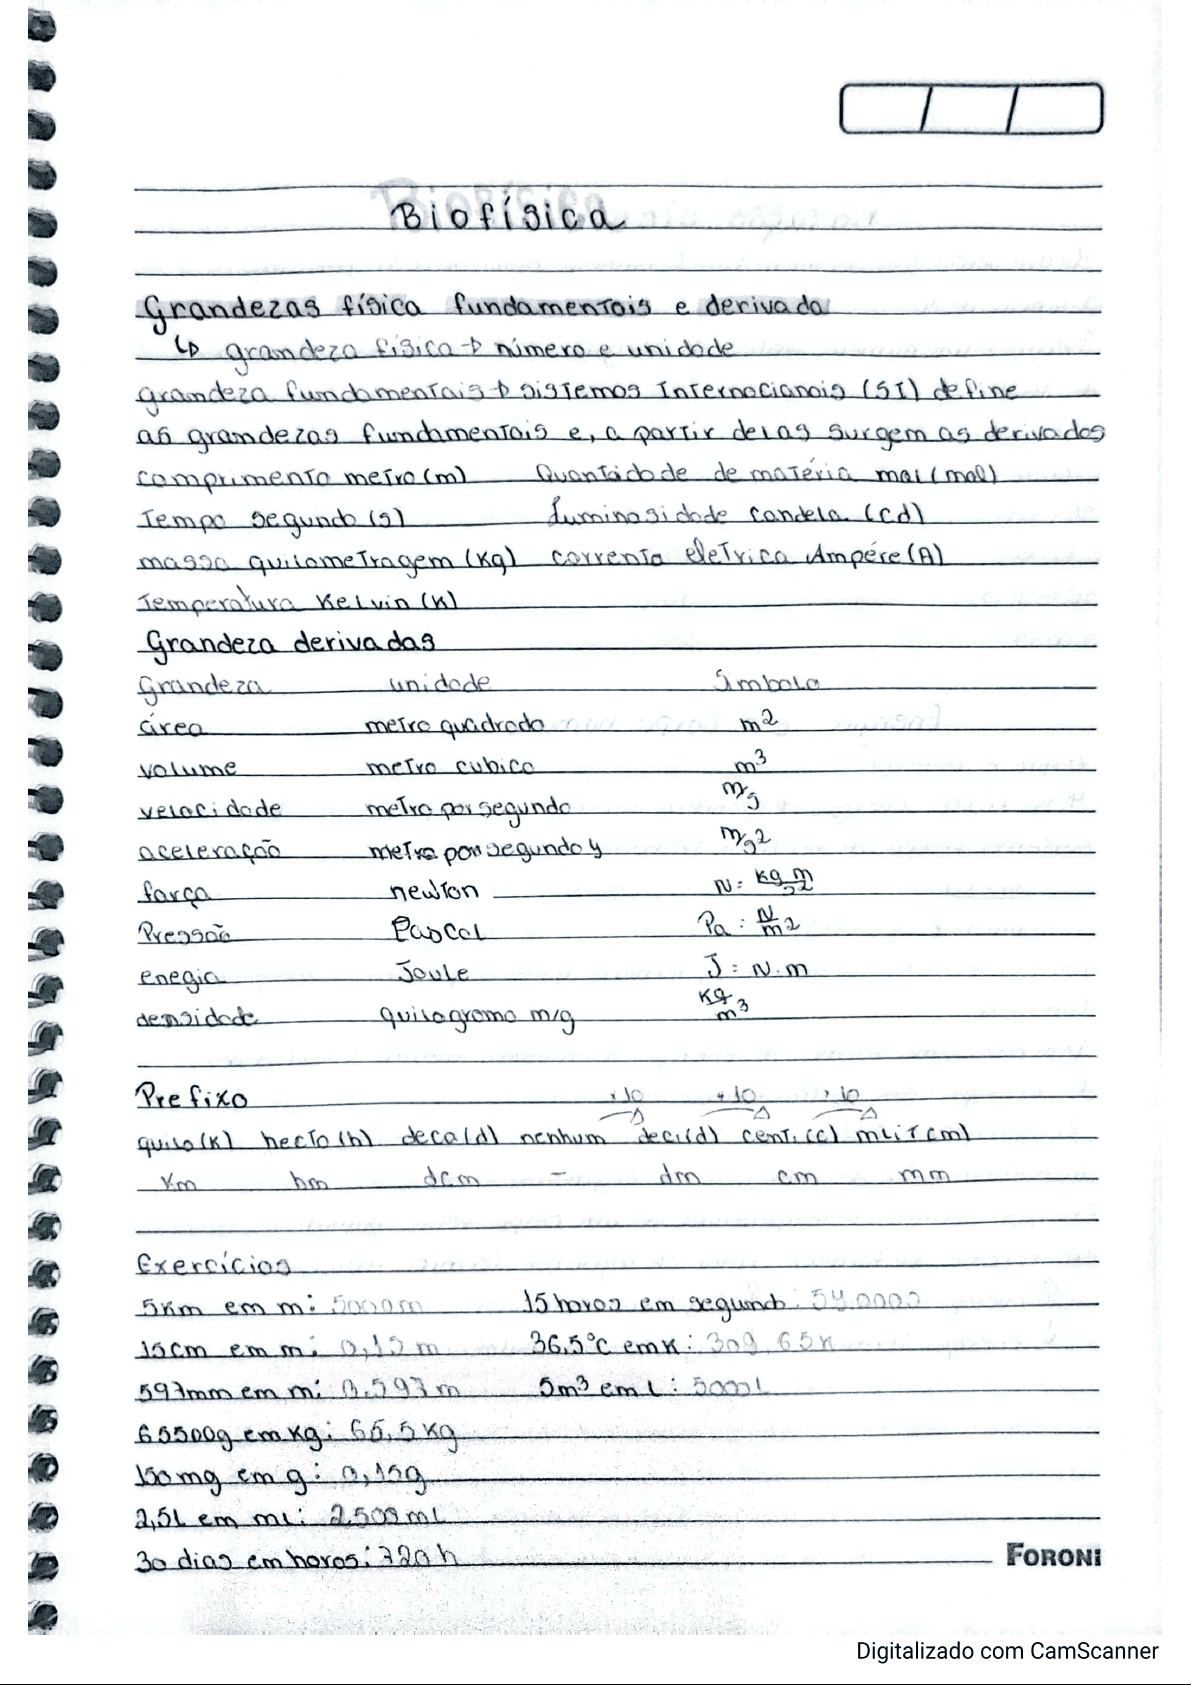 Biofísica
Grandezas física fundamentais e derivada
↳ grandeza física → número e unidade
grandeza fundamentais → sistemas Internacionais (SI) define
as grandezas fundamentais e, a partir delas surgem as derivadas
comprimento metro (m) Quantidade de matéria mol (mol)
Tempo segundo (s) Luminosidade candela (cd)
massa quilometragem (Kg) corrente eletrica Ampére (A)
Temperatura Kelvin (K)
Grandeza derivadas
Grandeza unidade Símbolo
área metro quadrado m²
volume metro cubico m³
velocidade metro por segundo m/s
aceleração metro por segundo y m/s²
força newton N: kg m/s²
Pressão Pascal Pa: N/m²
enegia Joule J: N.m
densidade quilogramo m/g kg/m³
Prefixo ×10 ×10 ×10
quilo (K) hecto (h) deca (d) nenhum deci (d) centi (c) mili (m)
Km hm dcm - dm cm mm
Exercícios
5Km em m: 5000m 15 horas em segundo: 54.000s
15cm em m: 0,15 m 36,5°C em K: 309,65K
597mm em m: 0,597 m 5m³ em L: 5000L
65500g em Kg: 65,5 Kg
150mg em g: 0,15g
2,5L em mL: 2.500mL
30 dias em horas: 720h
FORONI
Digitalizado com CamScanner